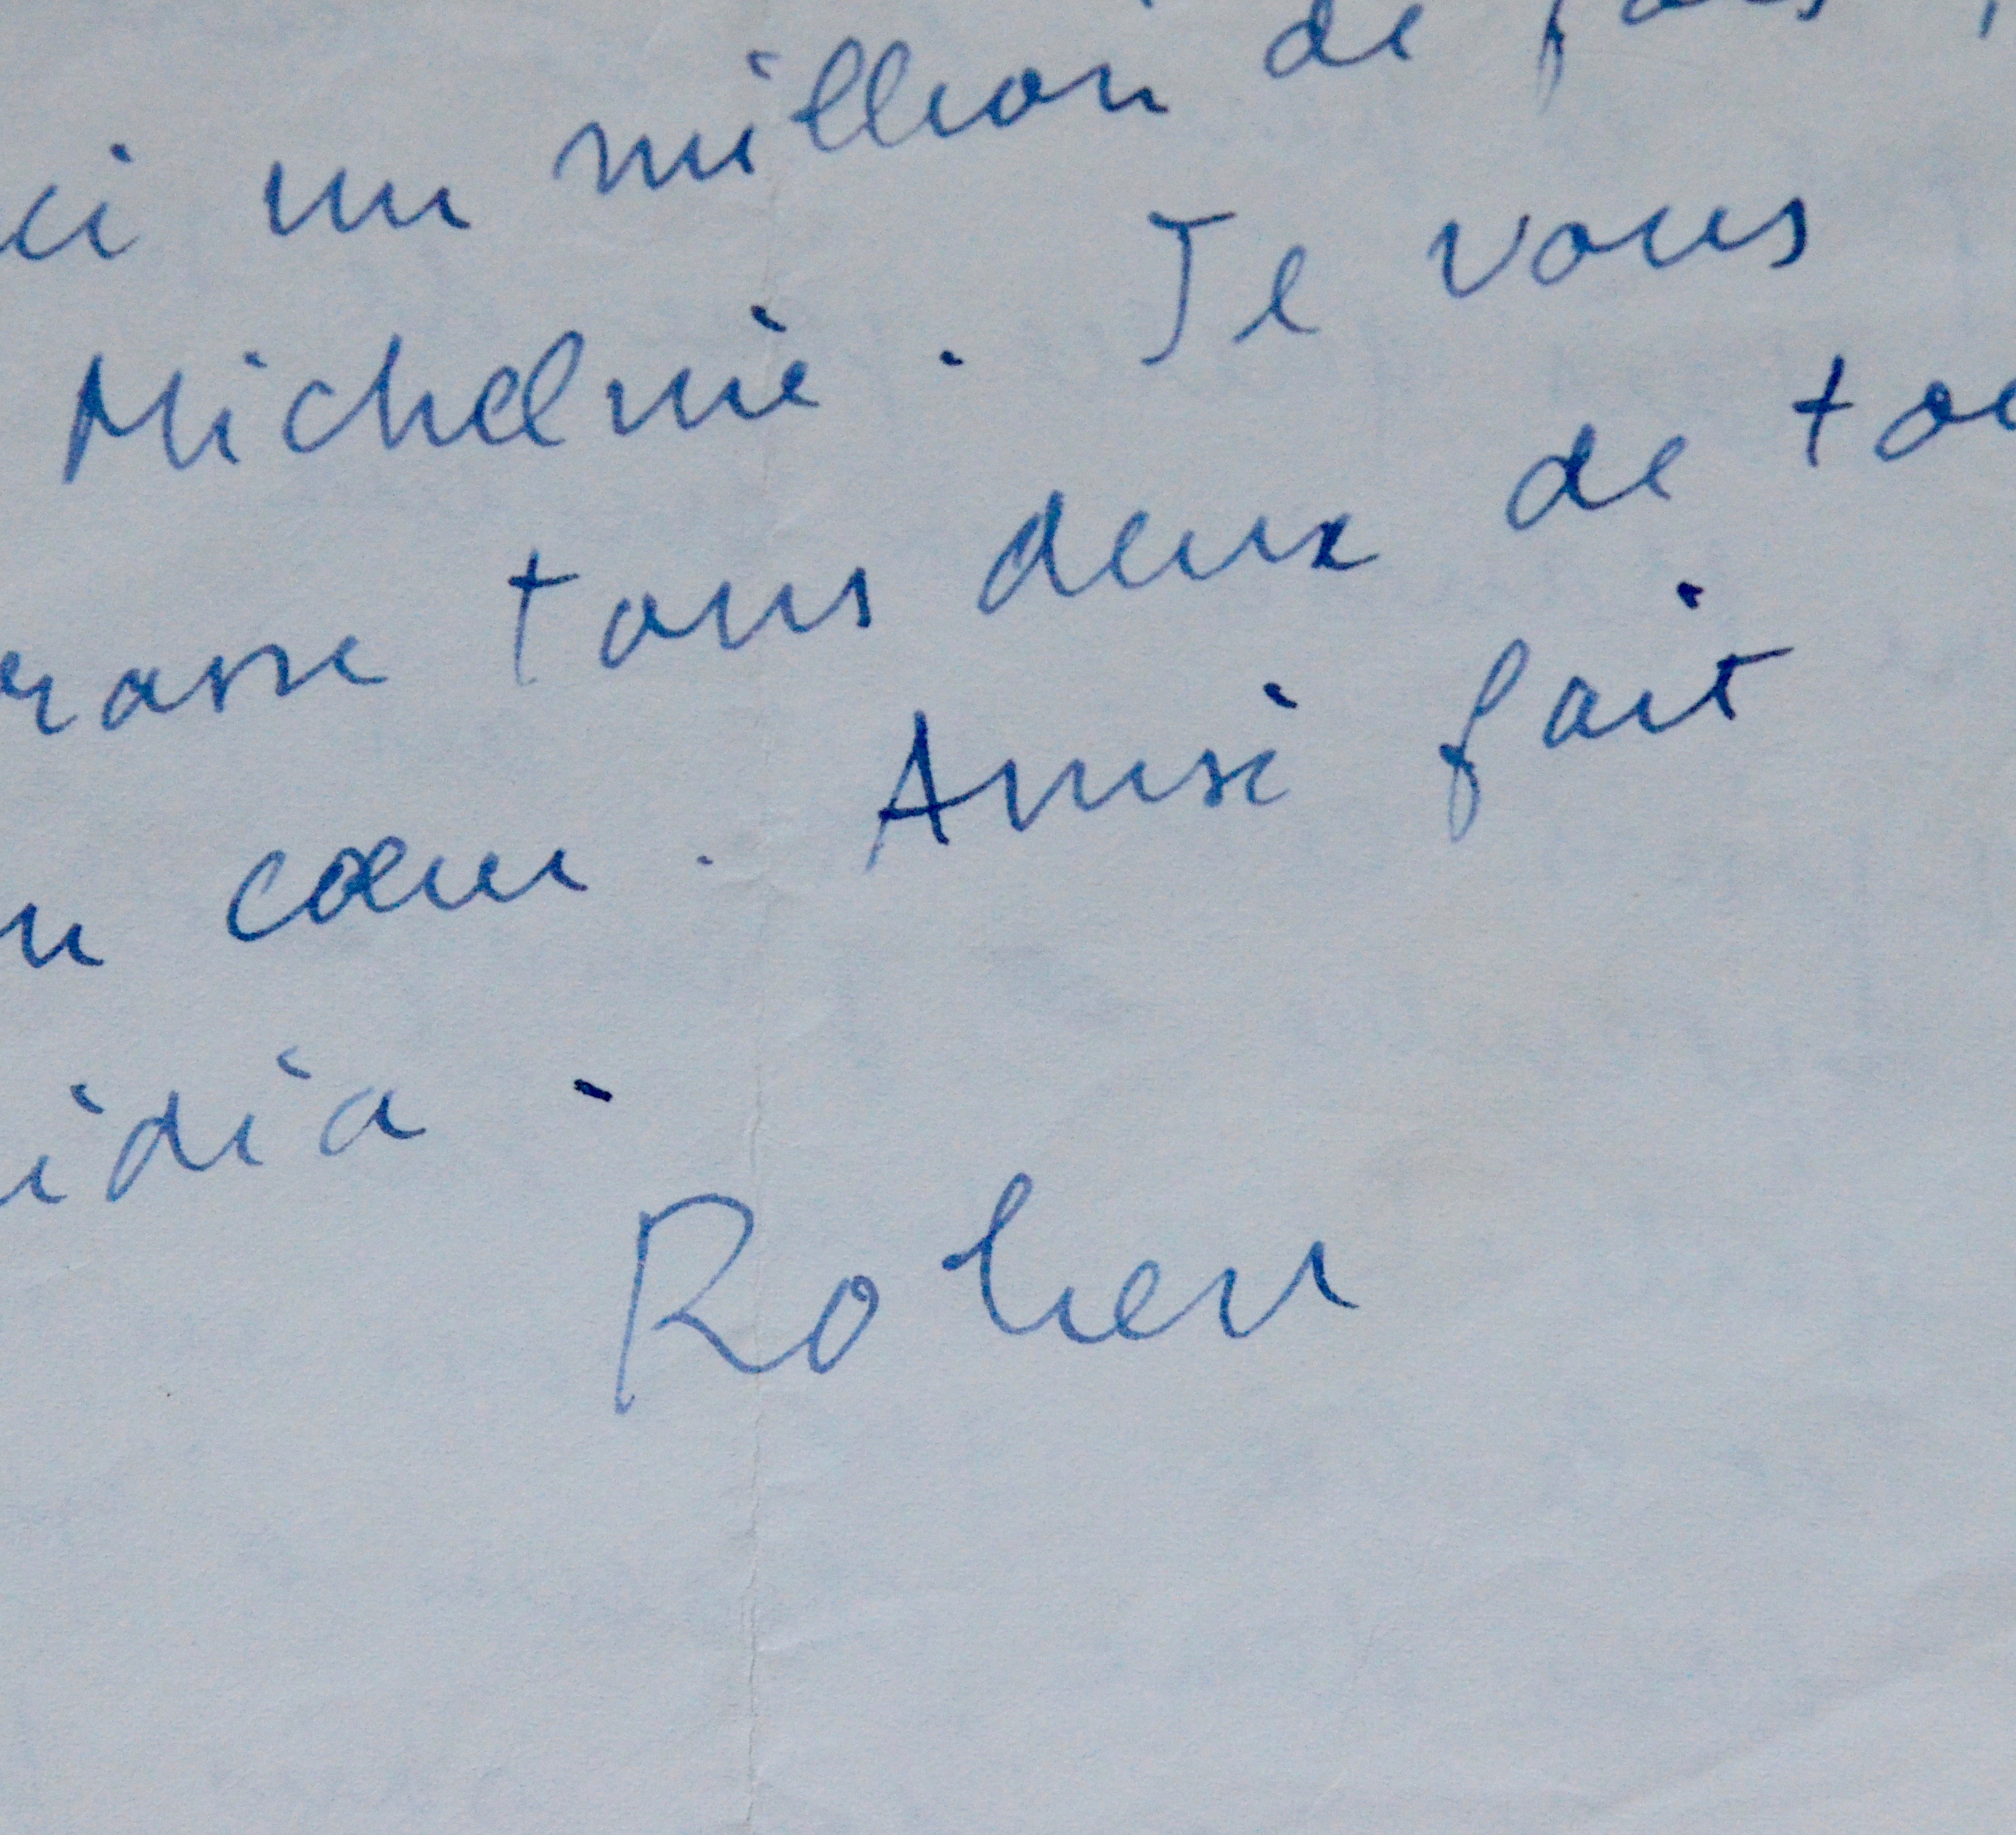 ci un million de fois
Micheline. Je vous
rasse tous deux de tou
n cœur. Ainsi fait
idia.
Robert